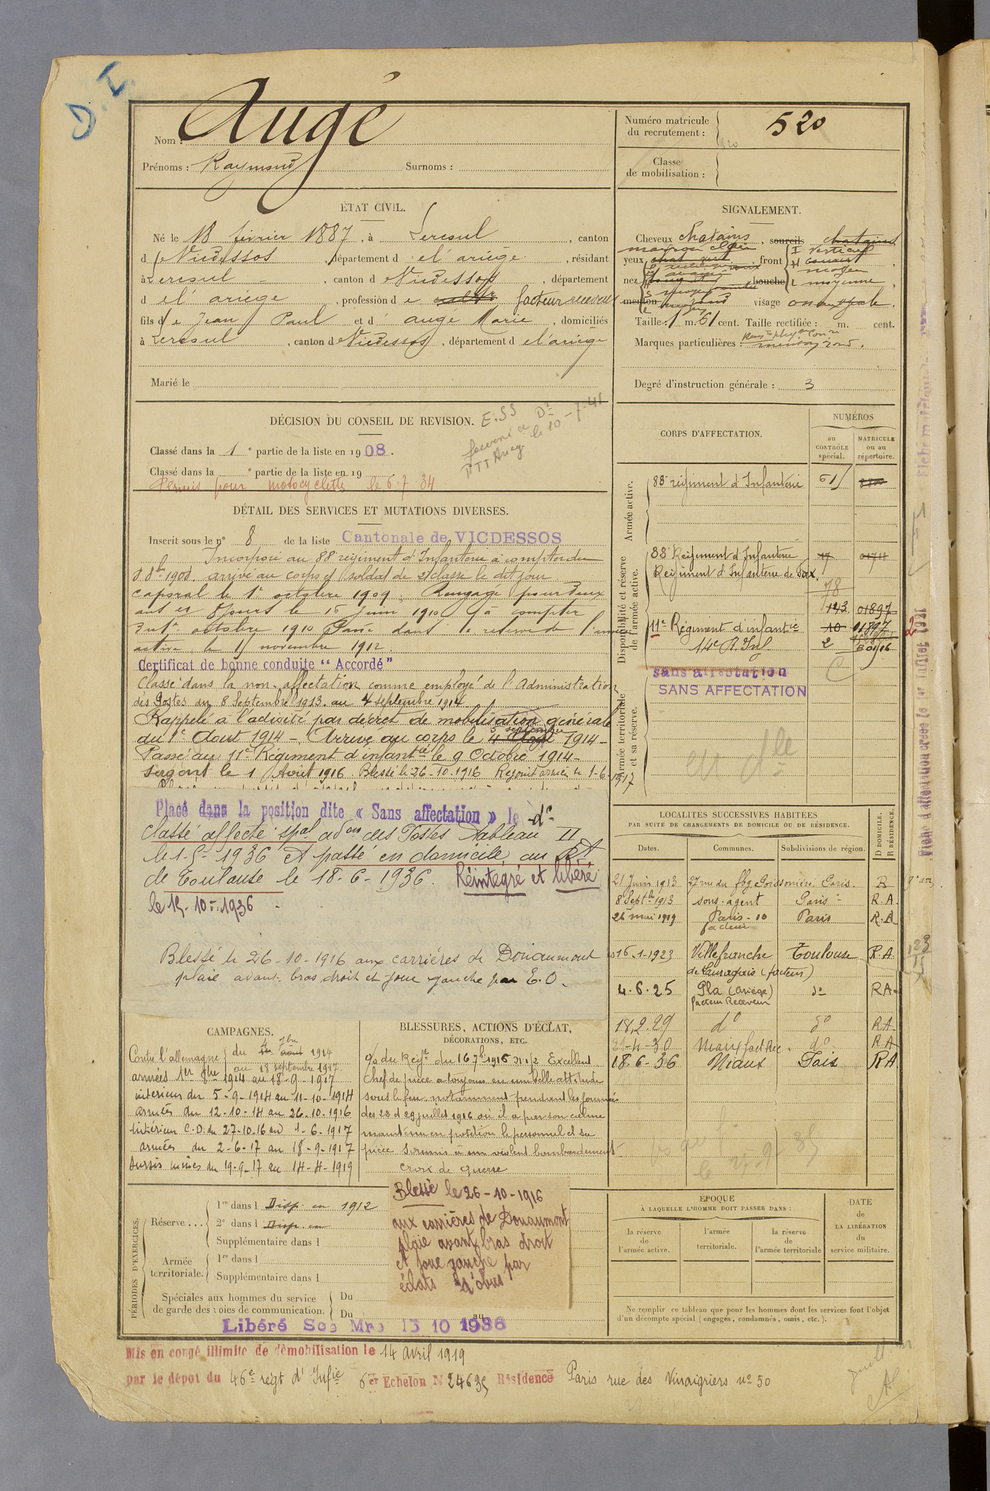 D. I.
Nom : Augé
Prénoms : Raymond Surnoms :
Numéro matricule du recrutement : 520
Classe de mobilisation :
ÉTAT CIVIL.
Né le 18 février 1887, à Lercoul, canton
d Vicdessos, département d el'ariège, résidant
à Lercoul, canton d Vicdessos, département
d el'ariège, profession d e facteur receveur
fils d e Jean Paul et d augé Marie, domiciliés
à Lercoul, canton d Vicdessos, département d el'ariège
Marié le
SIGNALEMENT.
Cheveux chatains, sourcils chatains
yeux front
nez bouche
menton visage
Taille : 1 m. 61 cent. Taille rectifiée : m. cent.
Marques particulières :
Degré d'instruction générale : 3
DÉCISION DU CONSEIL DE REVISION.
Classé dans la 1e partie de la liste en 1908.
Classé dans la e partie de la liste en 19
Permis pour motocyclette le 6.7 34
DÉTAIL DES SERVICES ET MUTATIONS DIVERSES.
Inscrit sous le n° 8 de la liste Cantonale de VICDESSOS
Incorporé au 88e régiment d'Infanterie à compter du
8 8bre 1908. arrivé au corps et soldat de 2e classe le dit jour
caporal le 1er octobre 1909. Rengagé pour deux
ans et 8 jours le 16 juin 1910 à compter
du 1er octobre 1910 Passé dans la réserve de l'armée
active le 1er novembre 1912.
Certificat de bonne conduite "Accordé"
Classé dans la non affectation comme employé de l'Administration
des Postes du 8 Septembre 1913 au 4 septembre 1914
Rappelé à l'activité par décret de mobilisation générale
du 1er Aout 1914 - Arrivé au corps le 4 Aout 5 septembre 1914 -
Passé au 11e Régiment d'infanterie le 9 Octobre 1914 -
Sergent le 1 Août 1916 Blessé le 26-10-1916 Rejoint armée le 1-6-1917
Placé dans la position dite « Sans affectation » le do
classé affecté spal adon des Postes Tableau II
le 1-5-1936 et passé en domicile au RA
de Toulouse le 18-6-1936. Réintégré et libéré
le 15-10-1936 -
Blessé le 26-10-1916 aux carrières de Douaumont
plaie avant-bras droit et joue gauche par E.O.
CORPS D'AFFECTATION.
NUMÉROS
au CONTRÔLE spécial.
MATRICULE ou au répertoire.
Armée active.
88e régiment d'Infanterie
Disponibilité et réserve de l'armée active.
88e Régiment d'Infanterie 17
Régiment d'Infanterie de Foix.
143 01897
11e Régiment d'infantie 10
14e R. Inf. 2
sans affectation
SANS AFFECTATION
Armée territoriale et sa réserve.
LOCALITÉS SUCCESSIVES HABITÉES
PAR SUITE DE CHANGEMENTS DE DOMICILE OU DE RÉSIDENCE.
Dates. Communes. Subdivisions de région. D DOMICILE. R RÉSIDENCE.
21 Juin 1913 27 rue du fbg Poissonnière Paris. R
8 Septbre 1913 sous-agent Paris R.A.
26 mai 1919 Paris - 10 facteur Paris R.A.
16-1-1923 Villefranche de Lauragais (facteur) Toulouse R.A.
4.6.25 Pla (Ariège) facteur Receveur do RA
18.2.29 do do RA
18.6-36 Niaux Foix RA
CAMPAGNES.
Contre l'allemagne du
armées au 18-9-1917
intérieur du 5-9-1914 au 11-10-1914
armées du 12-10-14 au 26-10-1916
Intérieur C.D. du 27-10-16 au 1-6-1917
armées du 2-6-17 au 18-9-1917
Sursis usines du 19-9-17 au 14-4-1919
BLESSURES, ACTIONS D'ÉCLAT,
DÉCORATIONS, ETC.
Excellent
chef de pièce a toujours eu une belle attitude
sous le feu notamment pendant les journées
des 28 et 29 juillet 1916 où il a par son calme
maintenu en position le personnel et sa
pièce soumis à un violent bombardement.
Croix de guerre
Blessé le 26-10-1916
aux carrières de Douaumont
plaie avant-bras droit
et joue gauche par
éclats d'obus
PÉRIODES D'EXERCICES.
Réserve...
1re dans l Disp. en 1912
2e dans l Disp. en
Supplémentaire dans l
Armée territoriale.
1re dans l
Supplémentaire dans l
Spéciales aux hommes du service de garde des voies de communication.
Du
Du au
Libéré Sce Mre 15 10 1936
ÉPOQUE
À LAQUELLE L'HOMME DOIT PASSER DANS :
la réserve de l'armée active.
l'armée territoriale.
la réserve de l'armée territoriale
DATE de LA LIBÉRATION du service militaire.
Ne remplir ce tableau que pour les hommes dont les services font l'objet
d'un décompte spécial (engagés, condamnés, omis, etc.).
Mis en congé illimité de démobilisation le 14 avril 1919
par le dépôt du 46e regt d'Infie 6er Echelon N° 24639 Résidence Paris rue des Vinaigriers no 50